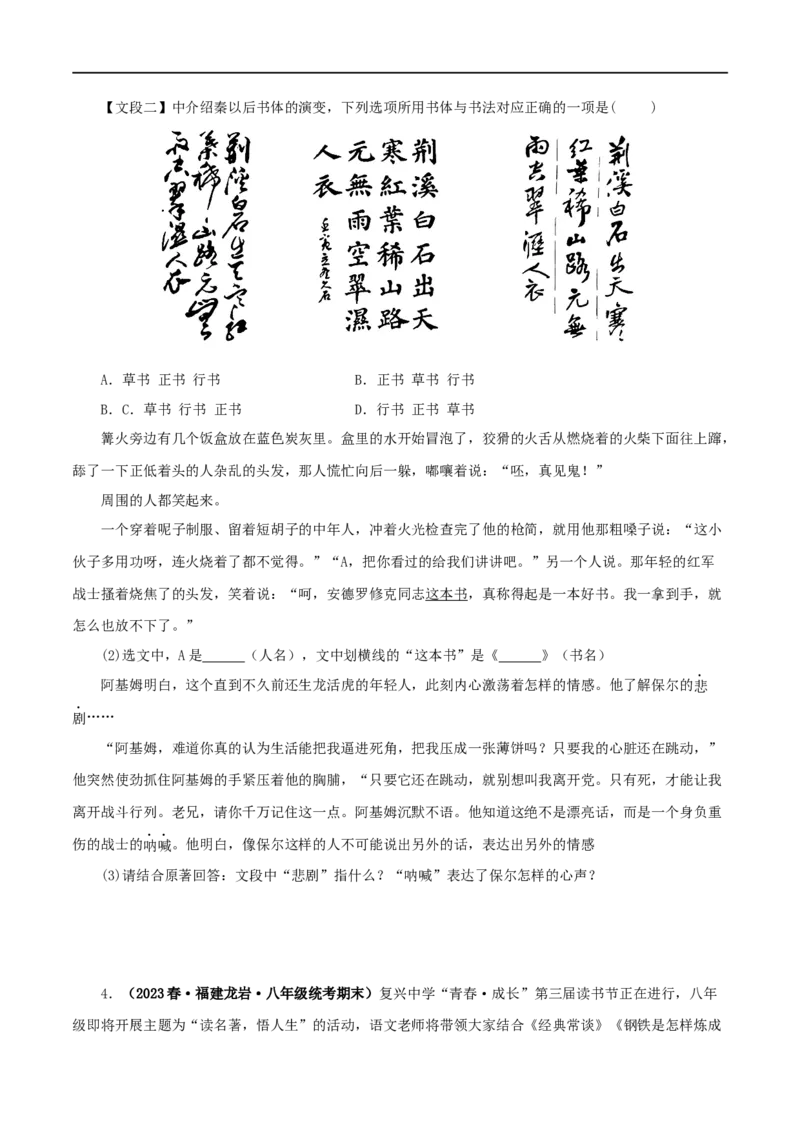 【文段二】中介绍秦以后书体的演变，下列选项所用书体与书法对应正确的一项是(    )
荆溪白石出天寒红
葉稀山路元無
雨空翠濕人衣
荆溪白石出天
寒紅葉稀山路
元無雨空翠濕
人衣
荆溪白石出天寒
红葉稀山路元無
雨空翠溼人衣
A．草书 正书 行书
B．正书 草书 行书
B．C．草书 行书 正书
D．行书 正书 草书
篝火旁边有几个饭盒放在蓝色炭灰里。盒里的水开始冒泡了，狡猾的火舌从燃烧着的火柴下面往上蹿，
舔了一下正低着头的人杂乱的头发，那人慌忙向后一躲，嘟囔着说：“呸，真见鬼！”
周围的人都笑起来。
一个穿着呢子制服、留着短胡子的中年人，冲着火光检查完了他的枪筒，就用他那粗嗓子说：“这小
伙子多用功呀，连火烧着了都不觉得。”“A，把你看过的给我们讲讲吧。”另一个人说。那年轻的红军
战士搔着烧焦了的头发，笑着说：“呵，安德罗修克同志这本书，真称得起是一本好书。我一拿到手，就
怎么也放不下了。”
(2)选文中，A是______（人名），文中划横线的“这本书”是《______》（书名）
阿基姆明白，这个直到不久前还生龙活虎的年轻人，此刻内心激荡着怎样的情感。他了解保尔的悲
剧……
“阿基姆，难道你真的认为生活能把我逼进死角，把我压成一张薄饼吗？只要我的心脏还在跳动，”
他突然使劲抓住阿基姆的手紧压着他的胸脯，“只要它还在跳动，就别想叫我离开党。只有死，才能让我
离开战斗行列。老兄，请你千万记住这一点。阿基姆沉默不语。他知道这绝不是漂亮话，而是一个身负重
伤的战士的呐喊。他明白，像保尔这样的人不可能说出另外的话，表达出另外的情感
(3)请结合原著回答：文段中“悲剧”指什么？“呐喊”表达了保尔怎样的心声？
4．（2023春·福建龙岩·八年级统考期末）复兴中学“青春·成长”第三届读书节正在进行，八年
级即将开展主题为“读名著，悟人生”的活动，语文老师将带领大家结合《经典常谈》《钢铁是怎样炼成